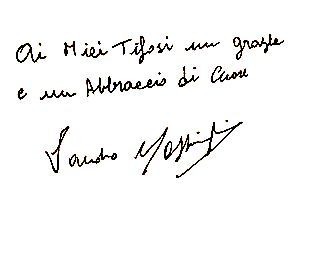 Ai Miei Tifosi un grazie
e un Abbraccio di Cuore
Sandro